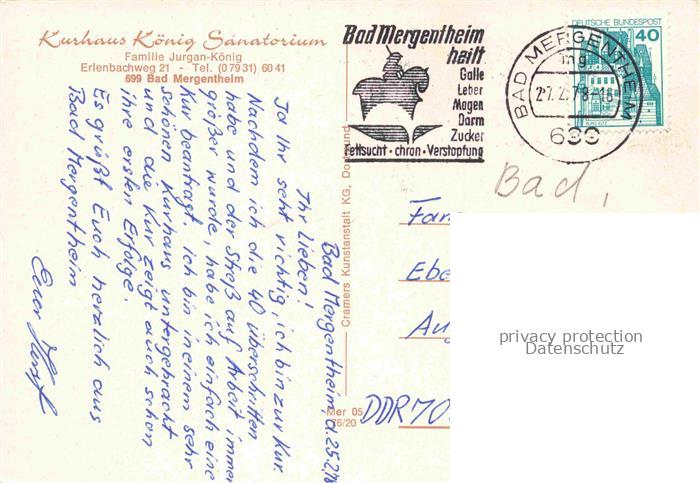 Kurhaus König Sanatorium
Familie Jurgan-König
Erlenbachweg 21 - Tel. (0 79 31) 60 41
699 Bad Mergentheim
Bad Mergentheim
heilt
Galle
Leber
Magen
Darm
Zucker
Fettsucht · chron · Verstopfung
BAD MERGENTHEIM
mg
27.2.78-16
699
DEUTSCHE BUNDESPOST
40
Bad Mergentheim, d. 25.2.78
Ihr Lieben!
Ja Ihr seht richtig, ich bin zur Kur.
Nachdem ich die 40 überschritten
habe und der Streß auf Arbeit immer
größer wurde, habe ich einfach eine
Kur beantragt. Ich bin in einem sehr
schönen Kurhaus untergebracht
und die Kur zeigt auch schon
ihre ersten Erfolge.
Es grüßt Euch herzlich aus
Bad Mergentheim
Euer
Cramers Kunstanstalt KG, Dortmund
Mer 05
76/20
Bad,
Fam
Ebe
Au
DDR 70
privacy protection
Datenschutz